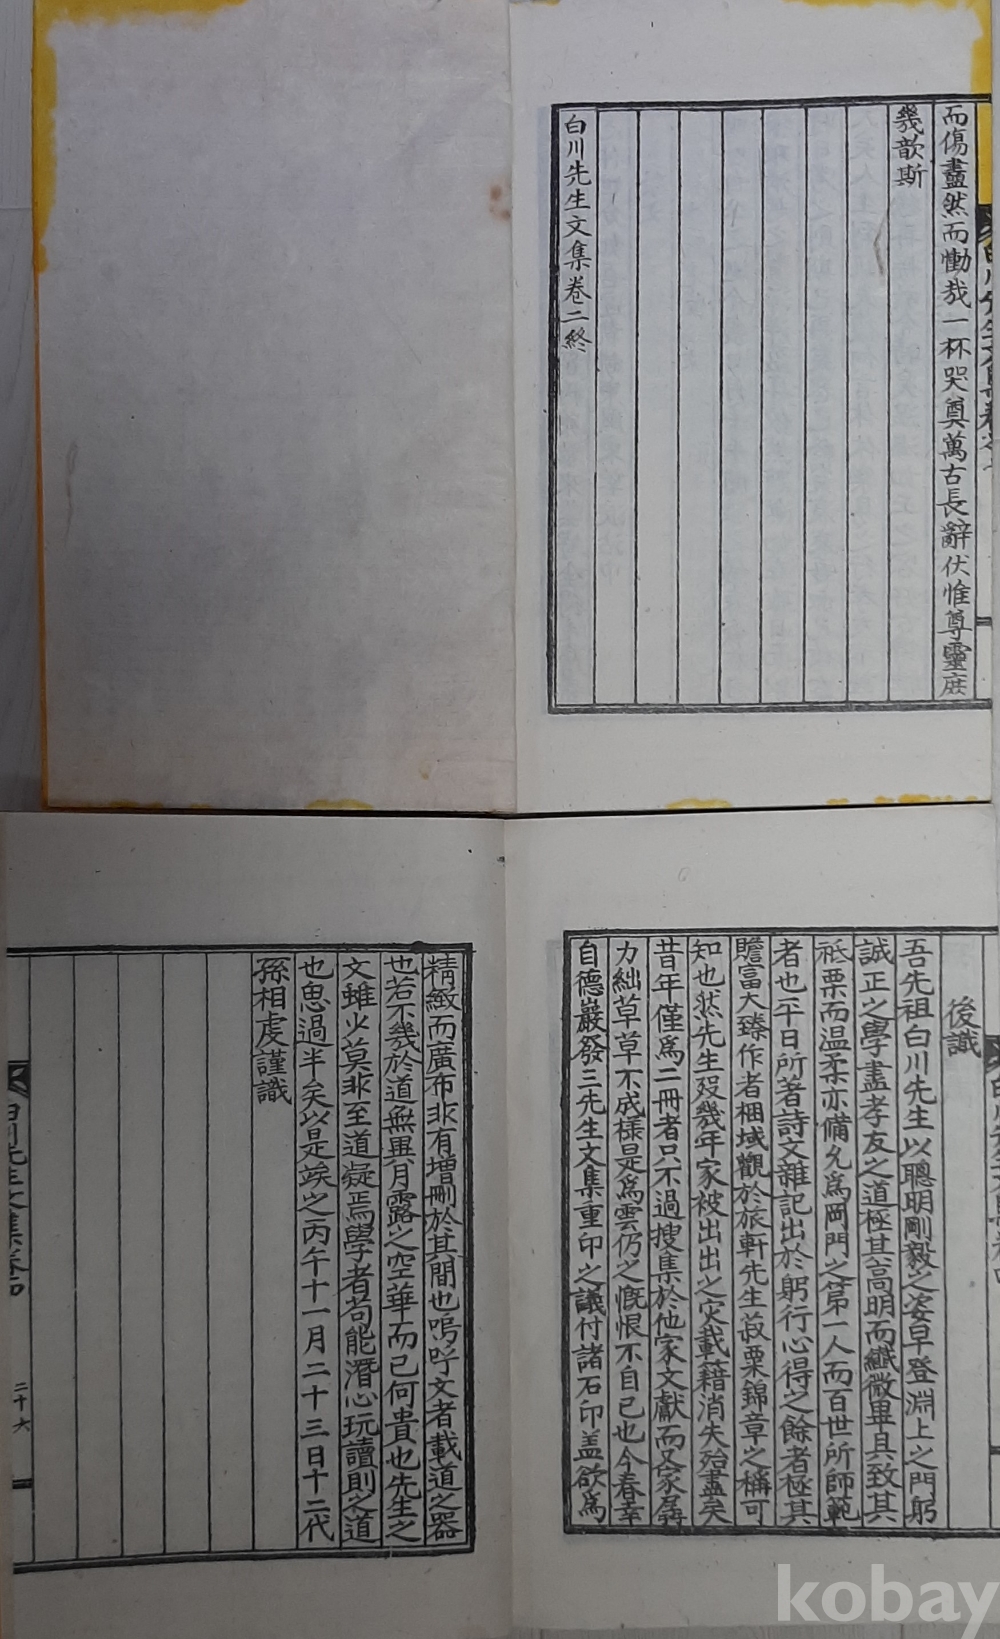 而傷盡然而慟哉一杯哭奠萬古長辭伏惟尊靈庶
幾歆斯
白川先生文集卷二終
後識
吾先祖白川先生以聰明剛毅之姿早登淵上之門躬
誠正之學盡孝友之道極其高明而纖微畢具致其
祗栗而温柔亦備允爲岡門之第一人而百世所師範
者也平日所著詩文雜記出於躬行心得之餘者極其
贍富大臻作者梱域觀於旅軒先生菽粟錦章之稱可
知也然先生歿幾年家被出出之灾載籍消失殆盡矣
昔年僅爲二冊者只不過搜集於他家文獻而又家孱
力絀草草不成樣是爲雲仍之慨恨不自已也今春幸
自德巖發三先生文集重印之議付諸石印盖欲爲
精緻而廣布非有增刪於其間也嗚呼文者載道之器
也若不幾於道無異月露之空華而已何貴也先生之
文雖少莫非至道凝焉學者苟能潛心玩讀則之道
也思過半矣以是竢之丙午十一月二十三日十二代
孫相虔謹識
白川先生文集卷
二十六
kobay